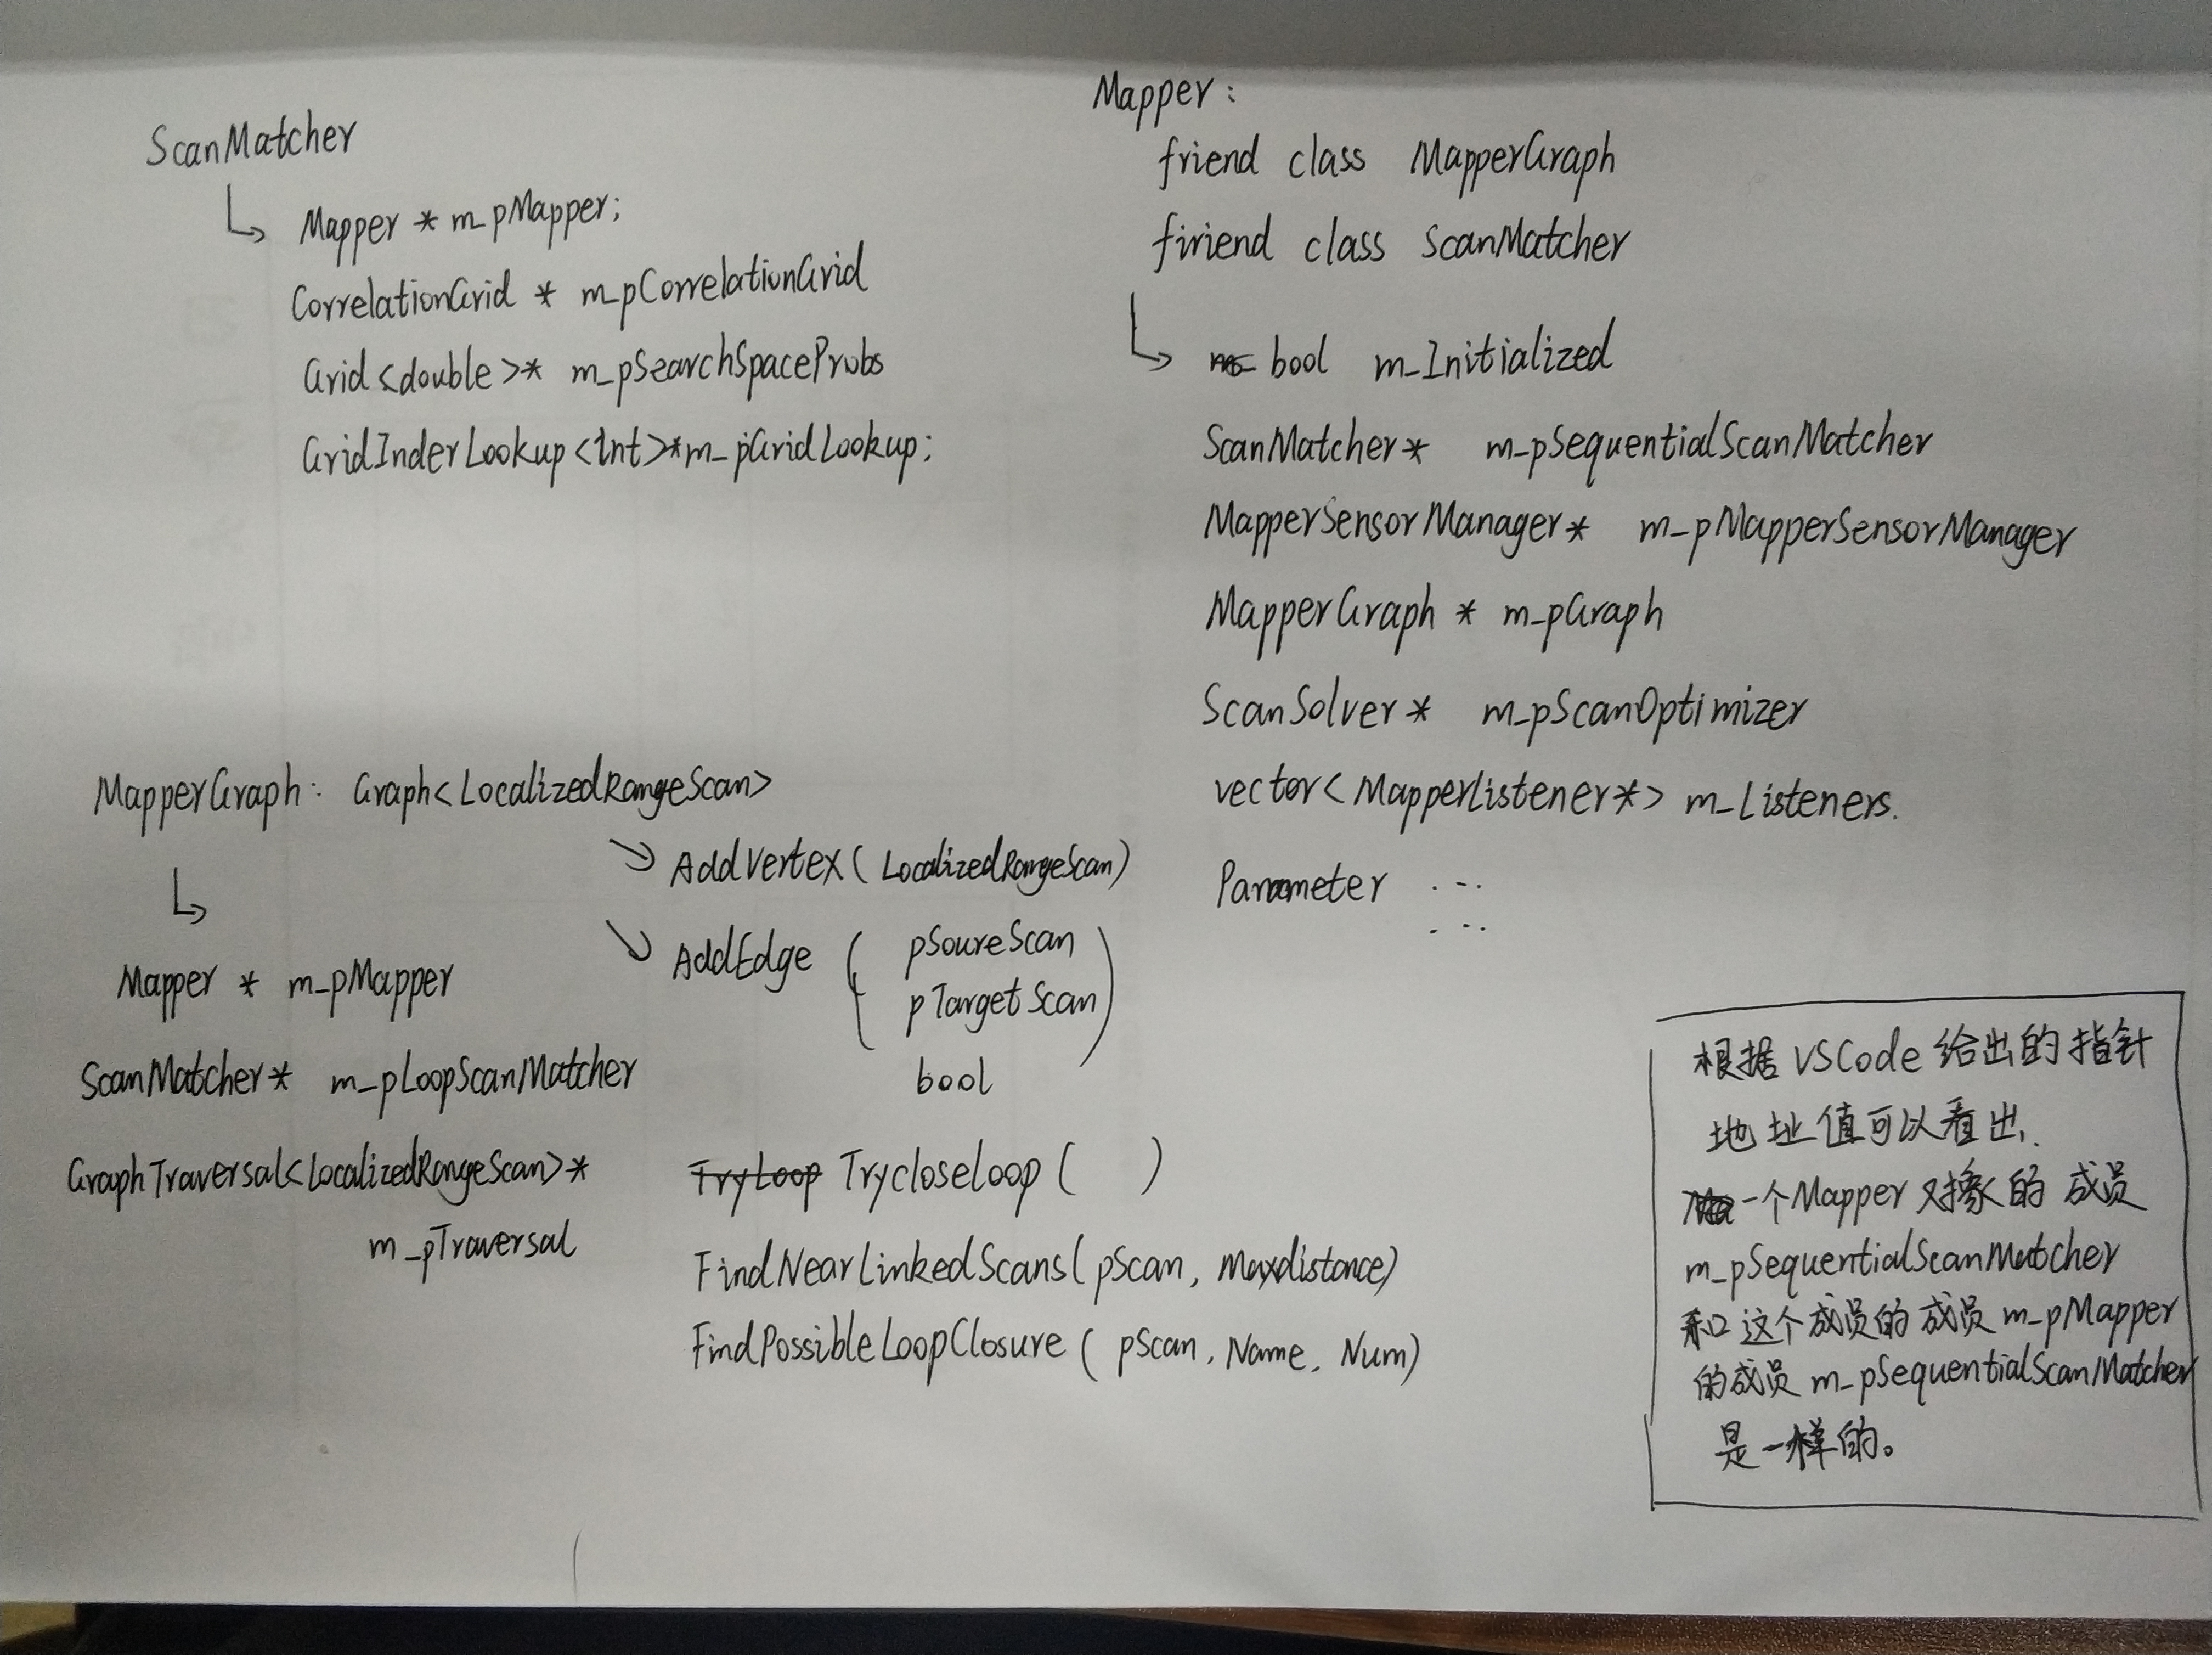 ScanMatcher
Mapper * m_pMapper;
CorrelationGrid * m_pCorrelationGrid
Grid<double>* m_pSearchSpaceProbs
GridInderLookup<int>*m_pGridLookup;
Mapper:
friend class MapperGraph
firiend class ScanMatcher
bool m_Initialized
ScanMatcher* m_pSequentialScanMatcher
MapperSensorManager* m_pMapperSensorManager
MapperGraph * m_pGraph
ScanSolver* m_pScanOptimizer
vector<MapperListener*> m_Listeners.
Parameter ...
...
MapperGraph: Graph<LocalizedRangeScan>
AddVertex(LocalizedRangeScan)
AddEdge ( pSoureScan
pTargetScan )
bool
Mapper * m_pMapper
ScanMatcher* m_pLoopScanMatcher
GraphTraversal<LocalizedRangeScan>*
m_pTraversal
TryLoop Trycloseloop ( )
FindNearLinkedScans(pScan, Maxdistance)
FindPossibleLoopClosure ( pScan, Name, Num)
根据VSCode给出的指针
地址值可以看出.
一个Mapper对象的成员
m_pSequentialScanMatcher
和这个成员的成员m_pMapper
的成员m_pSequentialScanMatcher
是一样的。